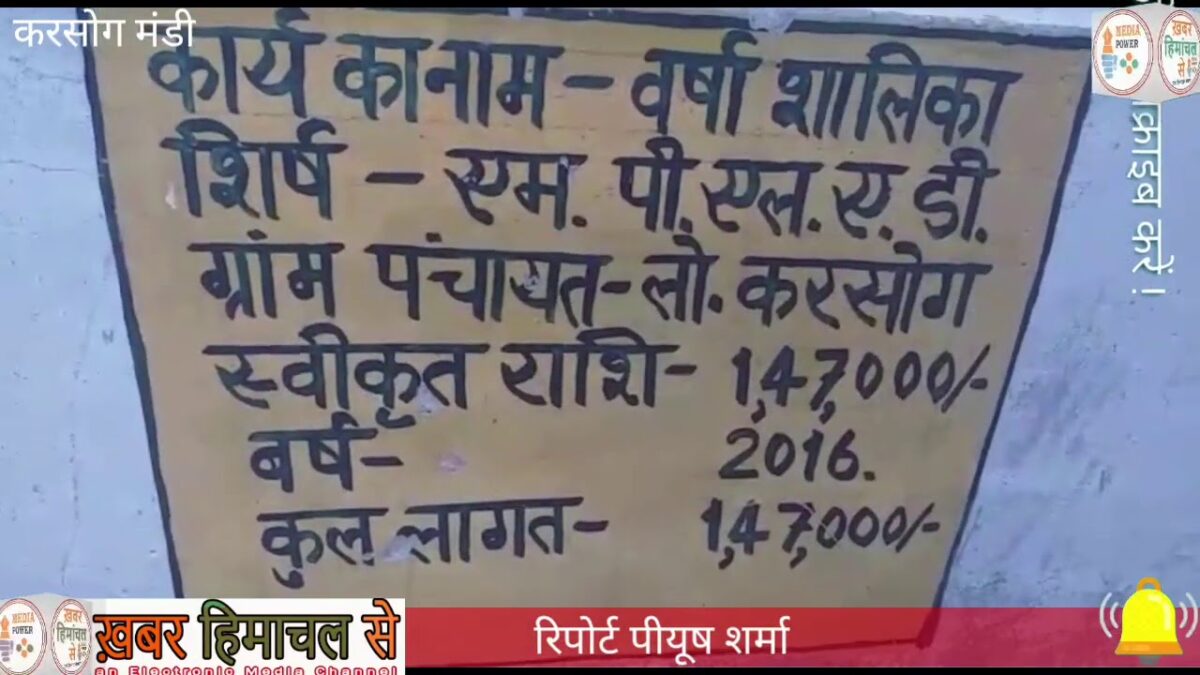 करसोग मंडी
कार्य कानाम - वर्षा शालिका
शिर्ष - एम. पी. एल. ए. डी.
ग्रांम पंचायत - लो. करसोग
स्वीकृत राशि - 1,47,000/-
बर्ष - 2016.
कुल लागत - 1,47,000/-
MEDIA POWER
ख़बर हिमाचल से
क्राइब करें !
MEDIA POWER
ख़बर हिमाचल से
ख़बर हिमाचल से
an Electronic Media Channel
रिपोर्ट पीयूष शर्मा